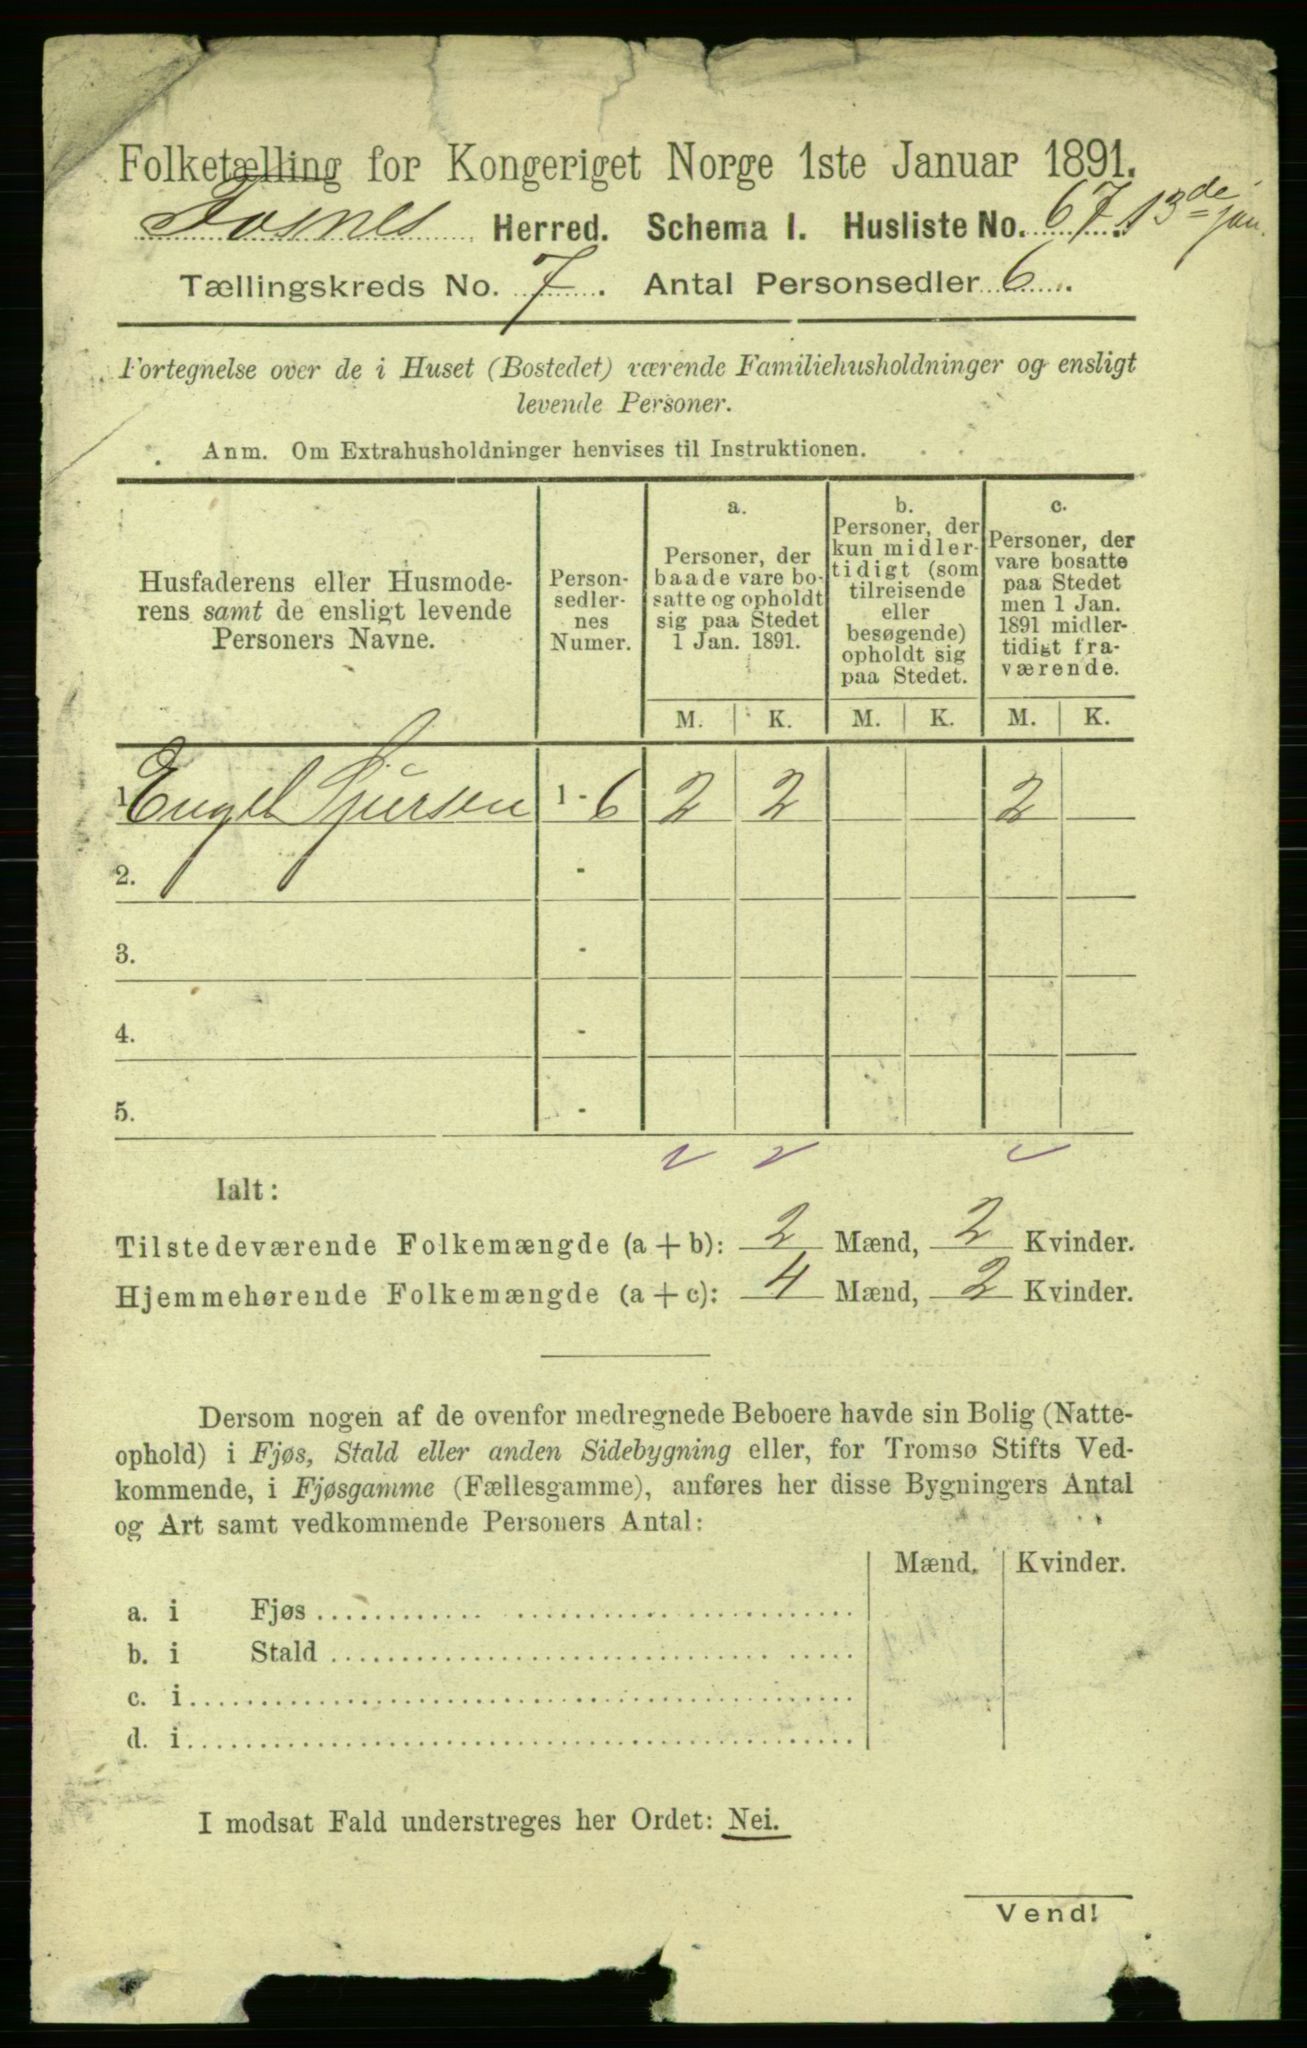 Folketælling for Kongeriget Norge 1ste Januar 1891.
Fosnes Herred. Schema I. Husliste No. 67. 13de jan.
Tællingskreds No. 7. Antal Personsedler 6.
Fortegnelse over de i Huset (Bostedet) værende Familiehusholdninger og ensligt
levende Personer.
Anm. Om Extrahusholdninger henvises til Instruktionen.
Husfaderens eller Husmode-
rens samt de ensligt levende
Personers Navne.
Person-
sedler-
nes
Numer.
a.
Personer, der
baade vare bo-
satte og opholdt
sig paa Stedet
1 Jan. 1891.
b.
Personer, der
kun midler-
tidigt (som
tilreisende
eller
besøgende)
opholdt sig
paa Stedet.
c.
Personer, der
vare bosatte
paa Stedet
men 1 Jan.
1891 midler-
tidigt fra-
værende.
M. K. M. K. M. K.
1. Engel Sjursen 1 - 6 2 2 2
2. -
3. -
4. -
5. -
Ialt:
Tilstedeværende Folkemængde (a + b): 2 Mænd, 2 Kvinder.
Hjemmehørende Folkemængde (a + c): 4 Mænd, 2 Kvinder.
Dersom nogen af de ovenfor medregnede Beboere havde sin Bolig (Natte-
ophold) i Fjøs, Stald eller anden Sidebygning eller, for Tromsø Stifts Ved-
kommende, i Fjøsgamme (Fællesgamme), anføres her disse Bygningers Antal
og Art samt vedkommende Personers Antal:
Mænd. Kvinder.
a. i Fjøs
b. i Stald
c. i
d. i
I modsat Fald understreges her Ordet: Nei.
Vend!